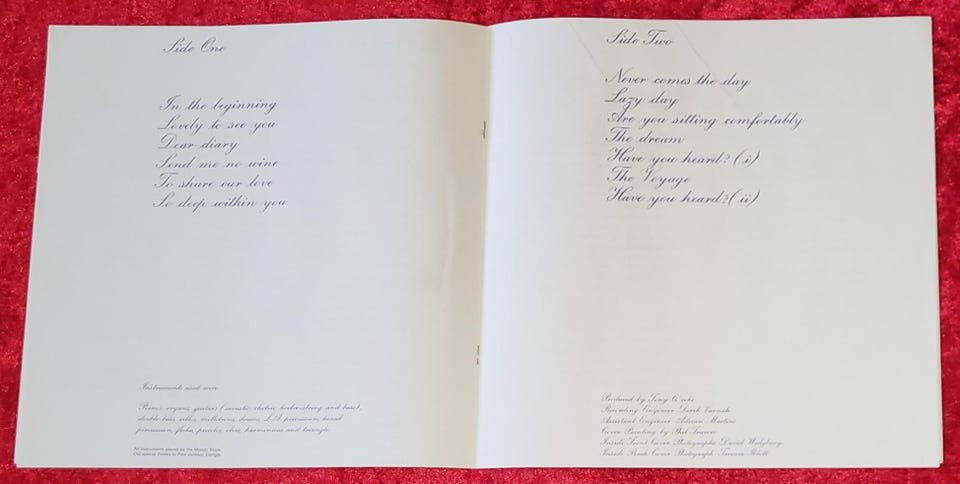 Side One
In the beginning
Lovely to see you
Dear diary
Send me no wine
To share our love
So deep within you
Instruments used were
Pianos, organs, guitars (acoustic, electric, twelve-string and bass),
double-bass, cello, mellotron, drums, V.A. percussion, hand
percussion, flute, piccolo, oboe, harmonicas and triangle.
All instruments played by the Moody Blues.
Our special thanks to Peter Jackson
Side Two
Never comes the day
Lazy day
Are you sitting comfortably
The dream
Have you heard? (i)
The Voyage
Have you heard? (ii)
Produced by Tony
Recording Engineer Derek Varnals
Assistant Engineer Adrian Martins
Cover Painting by Phil Travers
Inside Front Cover Photographs, David Wedgbury
Inside Back Cover Photograph, Terence Ibbott